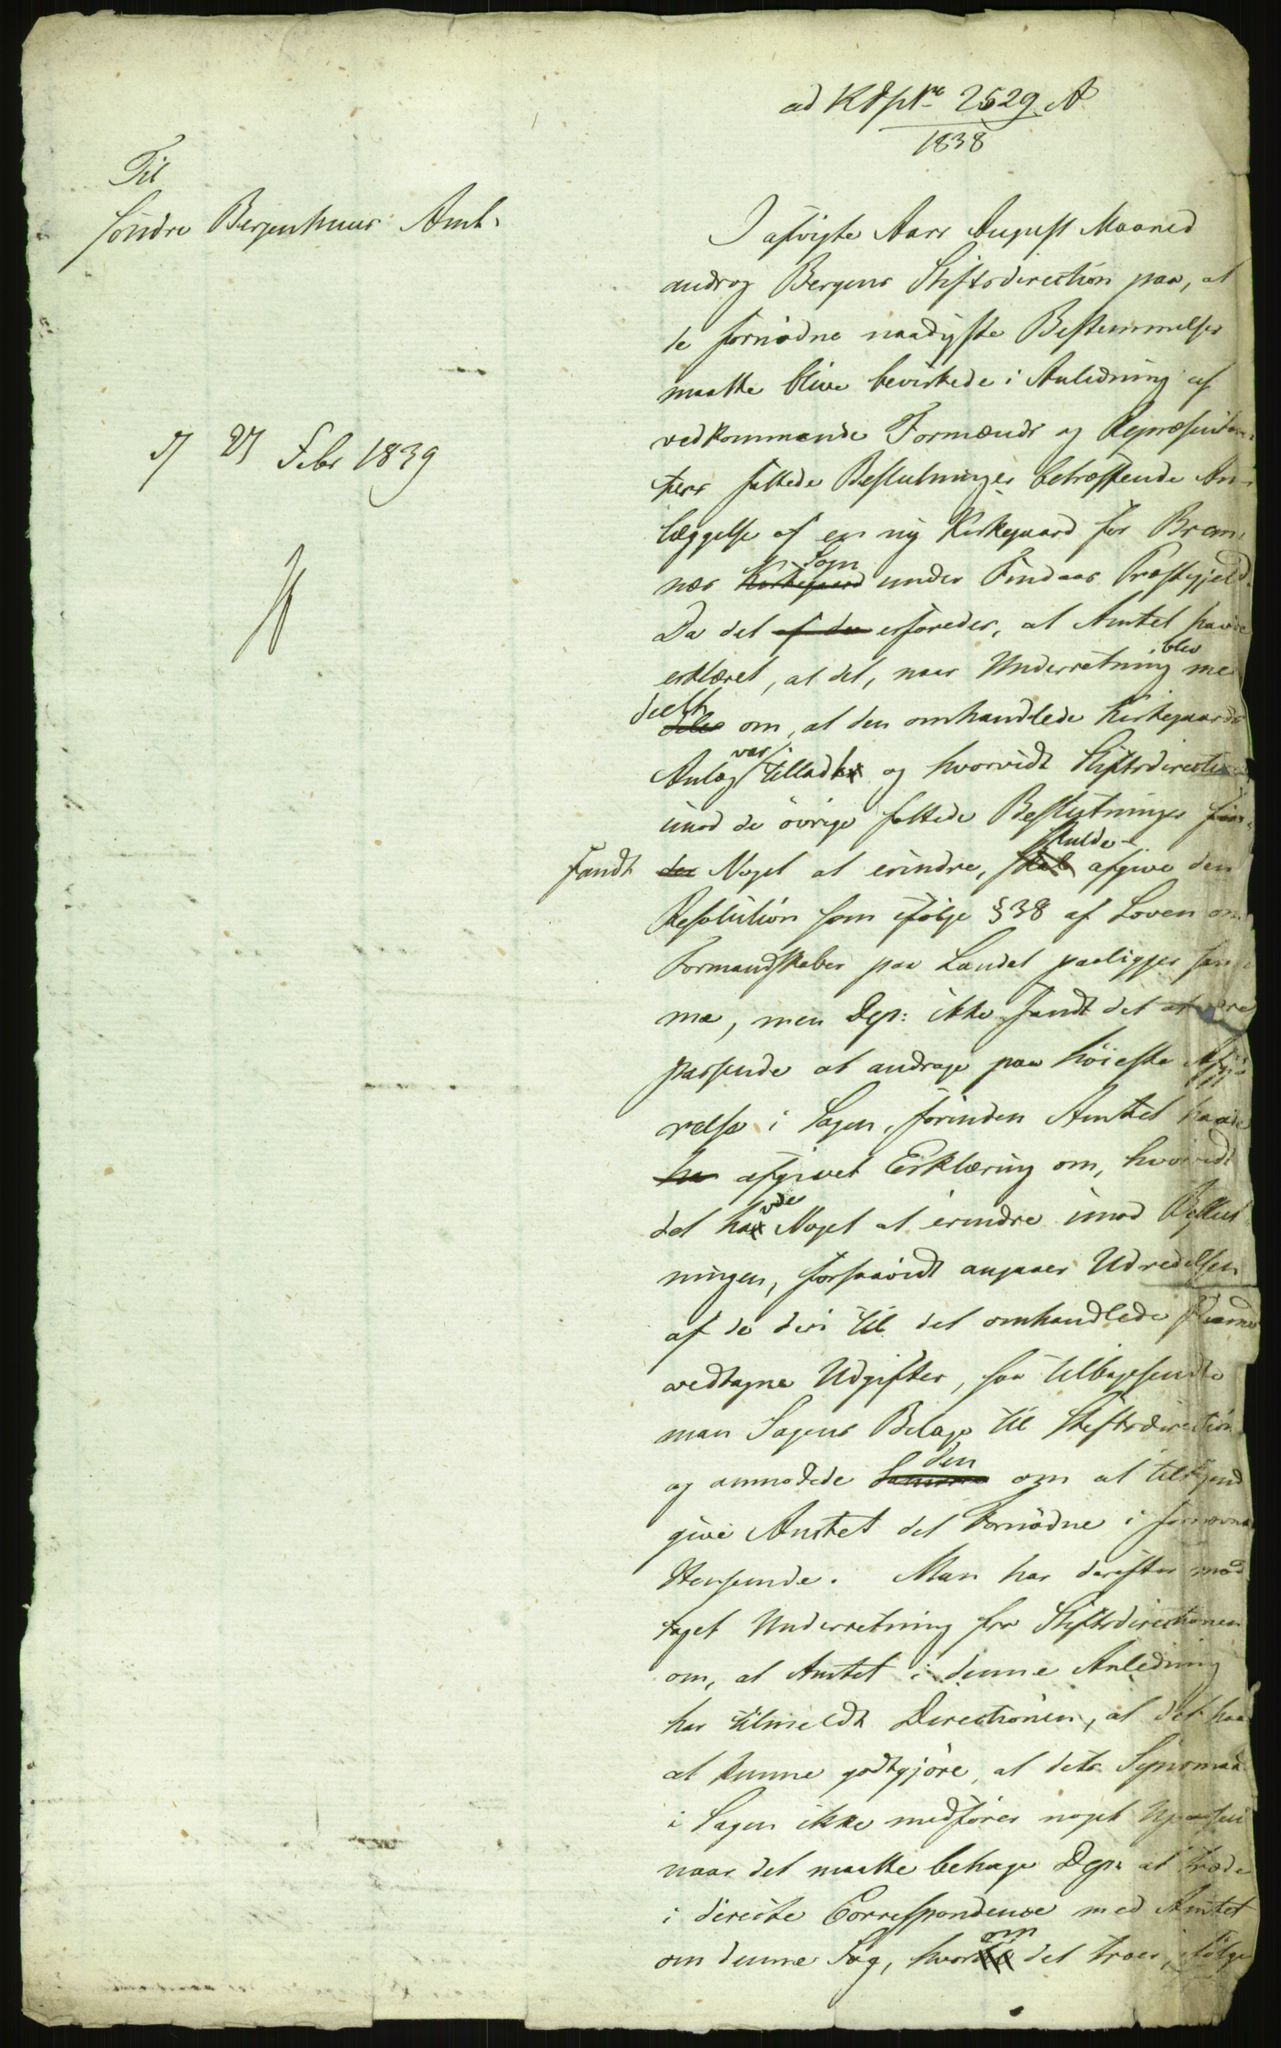 ad KDptNo 2529 A
1838
Til
Söndre Bergenhuus Amt.
27 Febr 1839
I afvigte Aars August Maaned
androg Bergens Stiftsdirection paa, at
de fornödne naadigste Bestemmelser
maatte blive bevirkede i Anledning af
vedkommende Formænds og Repræsentan-
ters fattede Beslutninger betræffende An-
læggelse af en ny Kirkegaard for Brem-
næs Kirkegaard Sogn under Findaas Præstegjeld.
Da det af de erfaredes, at Amtet havde
erklæret, at det, naar Underretning blev med
deelt om, at den omhandlede Kirkegaards
Anlæg var tilladt og hvorvidt Stiftsdirectionen
imod de övrige fattede Beslutninger
fandt Noget at erindre, skulde afgive den
Resolution som ifölge §38 af Loven om
Formandskaber paa Landet paaligger sam-
me, men Dep: ikke fandt det at være
passende at andrage paa höieste Afgjö-
relse i Sagen, forinden Amtet havde
ha afgivet Erklæring om, hvorvidt
det havde Noget at erindre imod Beslut-
ningen, forsaavidt angaaer Udredelsen
af de deri til det omhandlede Öiemed
vedtagne Udgifter, saa tilbagesendte
man Sagens Bilage til Stiftsdirection
og anmodede den om at tilkjende
give Amtet det Fornödne i fornævnte
Henseende. Man har derefter mod
taget Underretning fra Stiftsdirectionen
om, at Amtet i denne Anledning
har tilmeldt Directionen, at det haa
at kunne godtgjöre, at dets Synsmaa
i Sagen ikke medförer noget Upassen
naar det maatte behage Dep: at træde
i directe Correspondence med Amtet
om denne Sag, hvorom det troer, ifölge